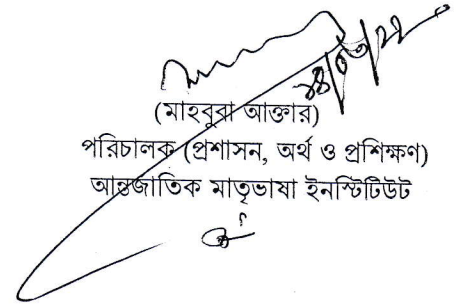 (মাহবুবা আক্তার)
পরিচালক (প্রশাসন, অর্থ ও প্রশিক্ষণ)
আন্তর্জাতিক মাতৃভাষা ইনস্টিটিউট